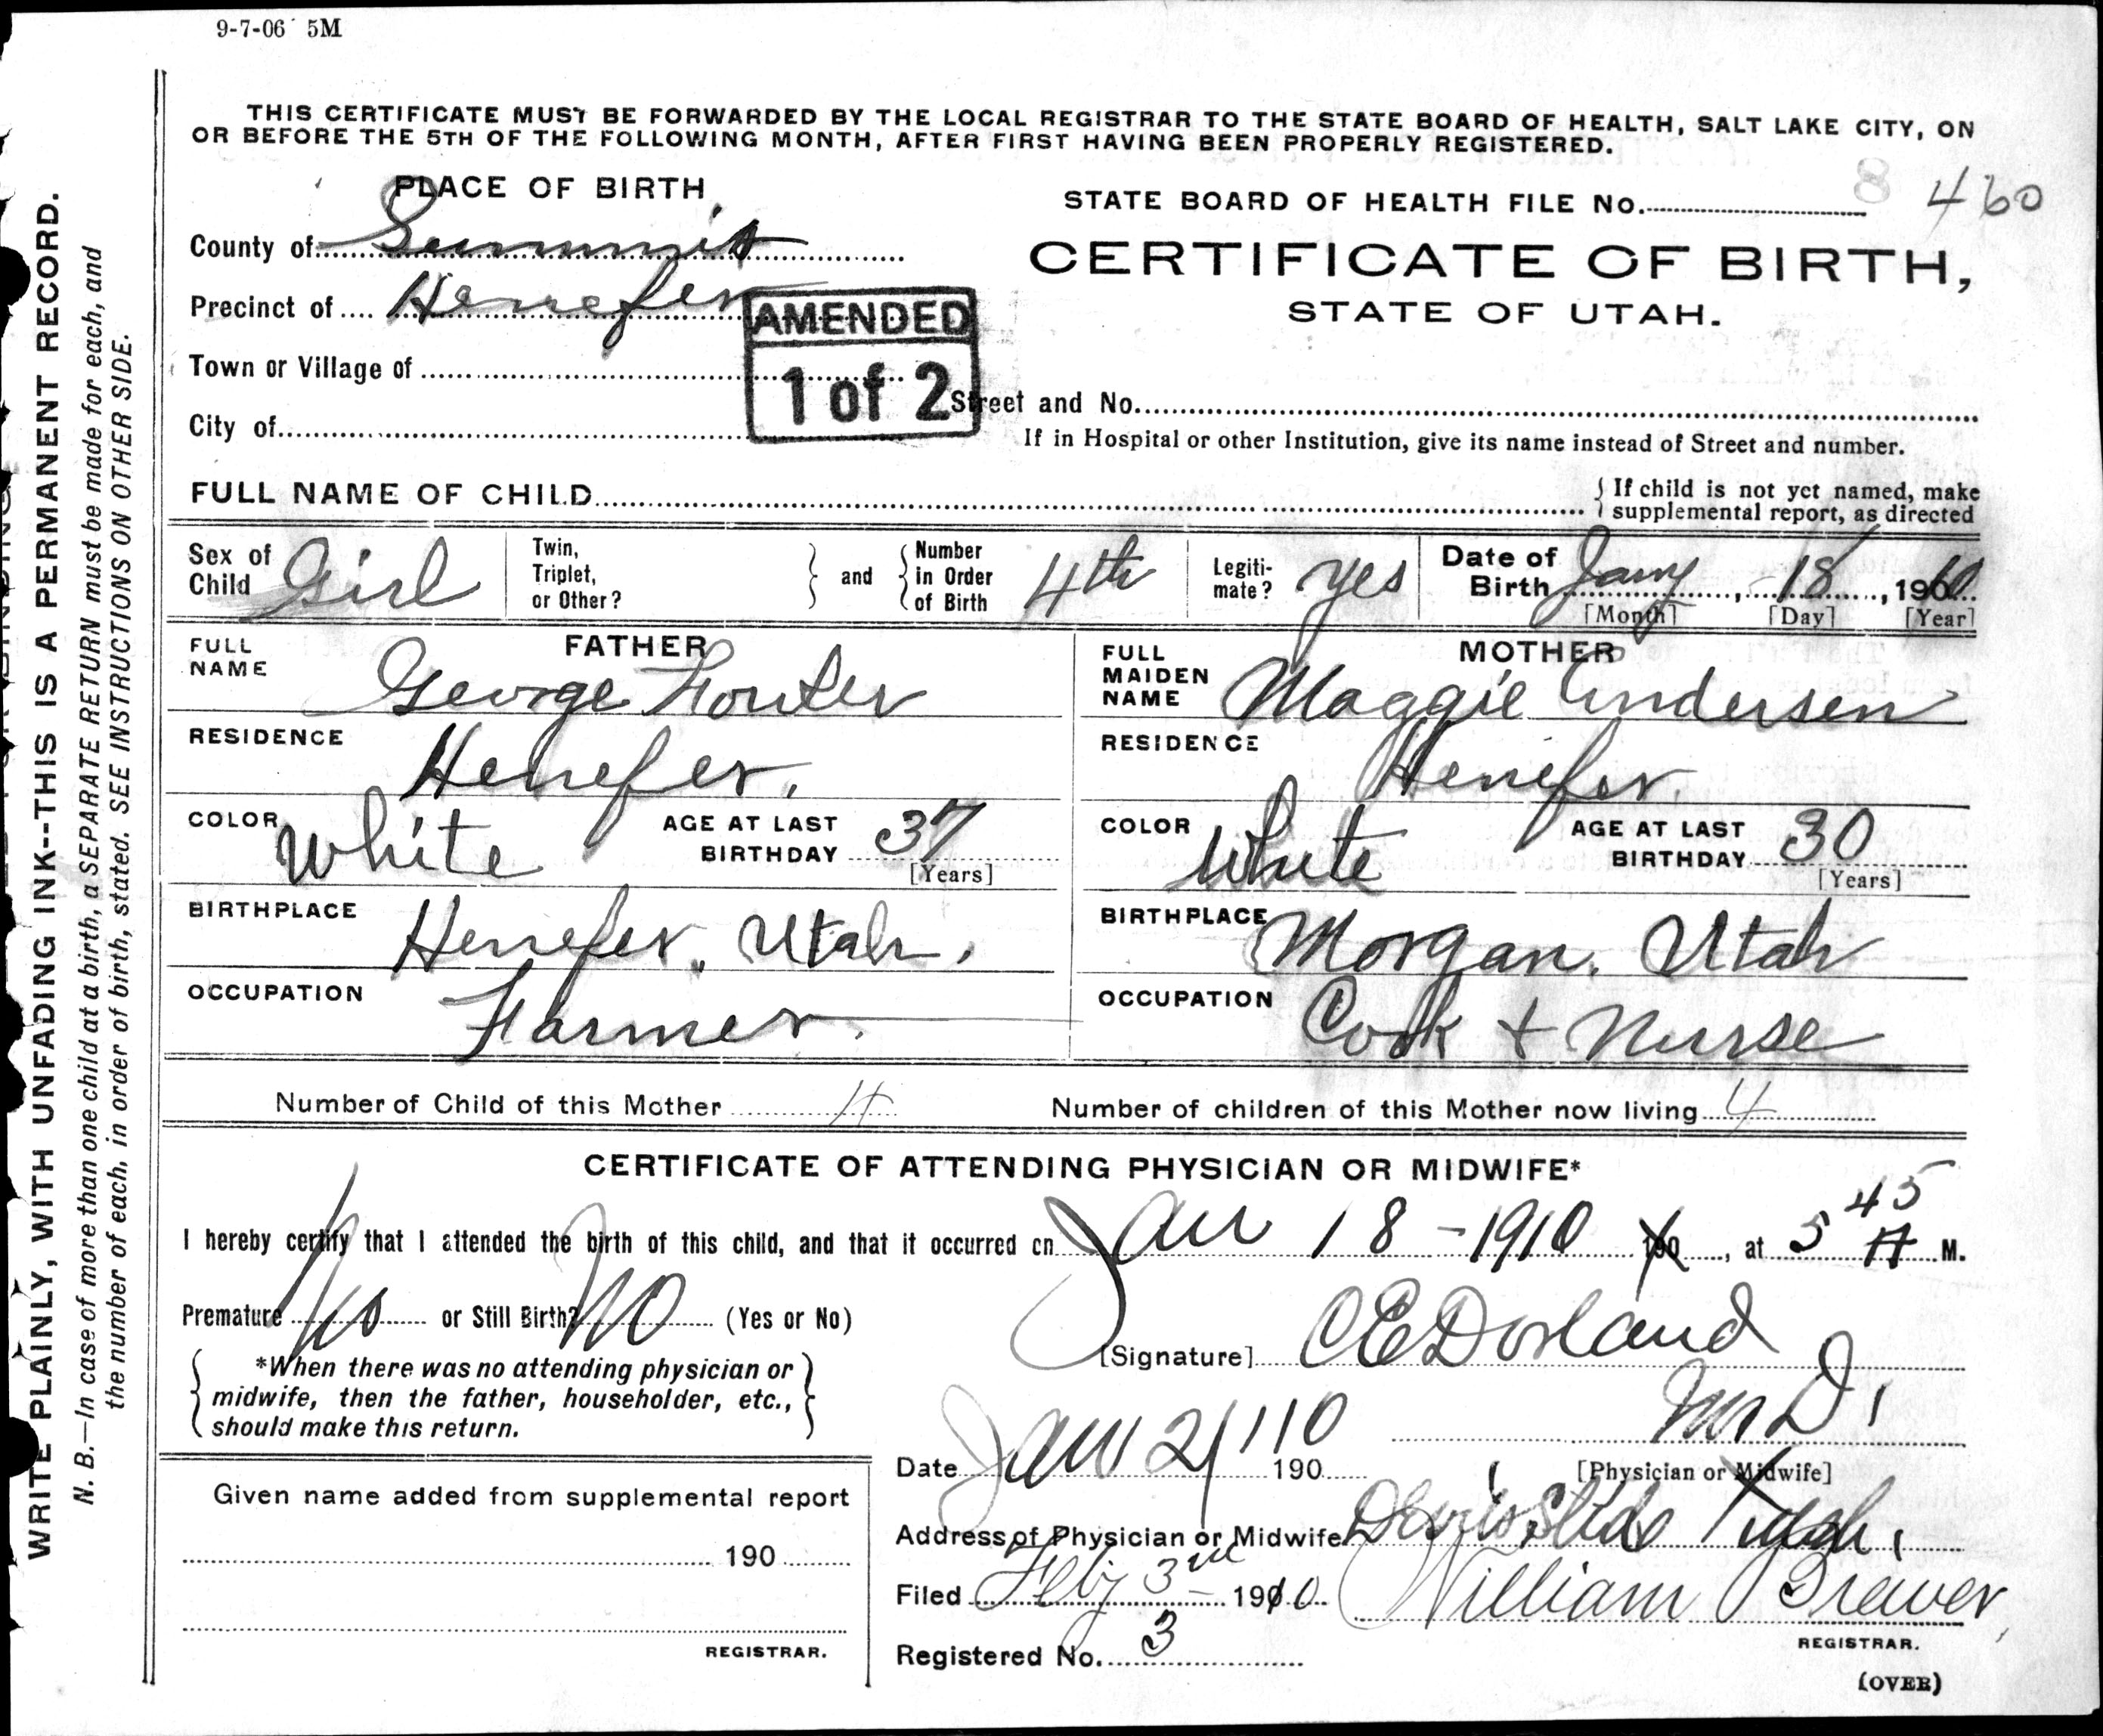 9-7-06 5M
THIS CERTIFICATE MUST BE FORWARDED BY THE LOCAL REGISTRAR TO THE STATE BOARD OF HEALTH, SALT LAKE CITY, ON
OR BEFORE THE 5TH OF THE FOLLOWING MONTH, AFTER FIRST HAVING BEEN PROPERLY REGISTERED.
PLACE OF BIRTH
County of Summit
Precinct of Henefer
Town or Village of
City of
AMENDED
1 of 2
STATE BOARD OF HEALTH FILE No. 8 460
CERTIFICATE OF BIRTH,
STATE OF UTAH.
Street and No.
If in Hospital or other Institution, give its name instead of Street and number.
FULL NAME OF CHILD
If child is not yet named, make
supplemental report, as directed
Sex of Child Girl
Twin, Triplet, or Other?
and
Number in Order of Birth 4th
Legiti-mate? yes
Date of Birth Jany, 18, 1910
[Month] [Day] [Year]
FATHER
FULL NAME George Fowler
RESIDENCE Henefer.
COLOR White AGE AT LAST BIRTHDAY 37
[Years]
BIRTHPLACE Henefer, Utah.
OCCUPATION Farmer.
MOTHER
FULL MAIDEN NAME Maggie Andersen
RESIDENCE Henefer.
COLOR White AGE AT LAST BIRTHDAY 30
[Years]
BIRTHPLACE Morgan, Utah
OCCUPATION Cook + Nurse
Number of Child of this Mother 4 Number of children of this Mother now living 4
CERTIFICATE OF ATTENDING PHYSICIAN OR MIDWIFE*
I hereby certify that I attended the birth of this child, and that it occurred on Jan 18-1910 190, at 5 45 A M.
Premature No or Still Birth? No (Yes or No)
*When there was no attending physician or
midwife, then the father, householder, etc.,
should make this return.
[Signature] C E Dorland
M D.
[Physician or Midwife]
Date Jan 21 '10 190
Address of Physician or Midwife Devil's Slide Utah.
Filed Feby 3rd 1910 William Brewer
REGISTRAR.
Registered No. 3
(OVER)
Given name added from supplemental report
190
REGISTRAR.
WRITE PLAINLY, WITH UNFADING INK--THIS IS A PERMANENT RECORD.
N. B.—In case of more than one child at a birth, a SEPARATE RETURN must be made for each, and
the number of each, in order of birth, stated. SEE INSTRUCTIONS ON OTHER SIDE.